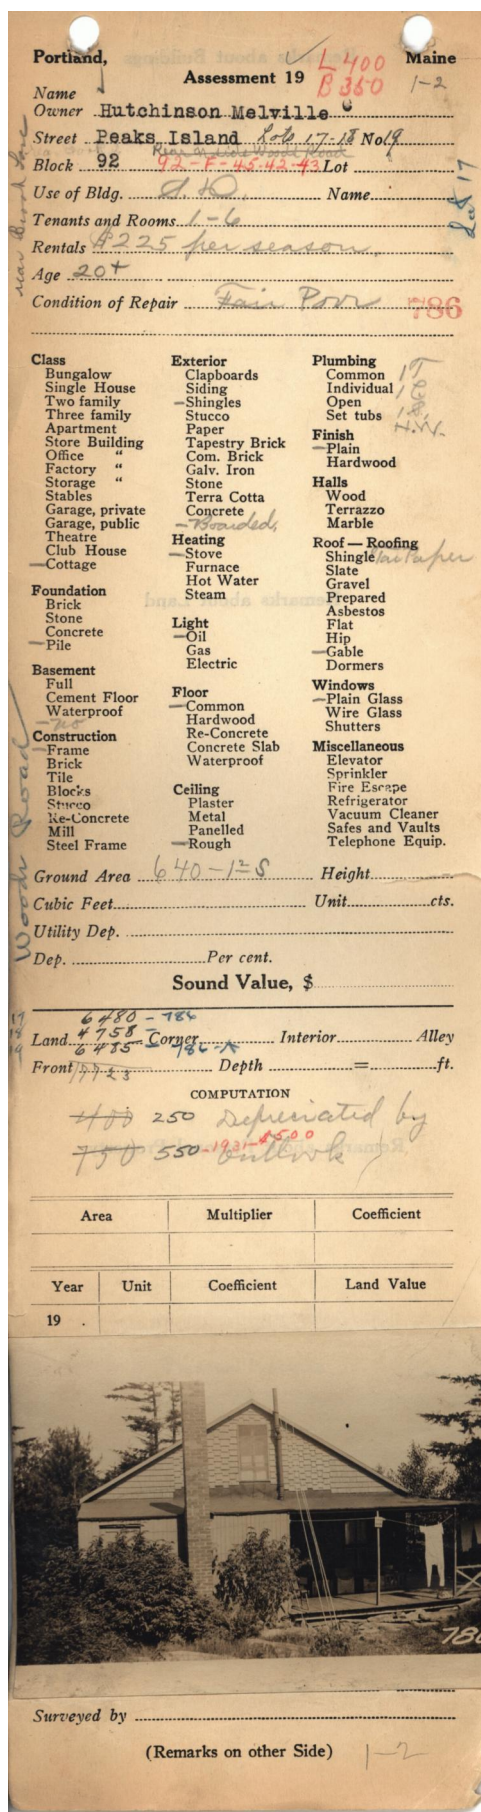 Portland, Maine
L 400
Assessment 19
B 350
1-2
Name
Owner Hutchinson Melville
Street Peaks Island Lots 17-18 No 19
Rear of Woods Road
Block 92 92-F-45-42-43 Lot
Lot 17
Use of Bldg. S.D. Name
Tenants and Rooms 1-6
Rentals $225 per season.
Age 20+
Condition of Repair Fair Poor 786
Class
Bungalow
Single House
Two family
Three family
Apartment
Store Building
Office "
Factory "
Storage "
Stables
Garage, private
Garage, public
Theatre
Club House
-Cottage
Foundation
Brick
Stone
Concrete
-Pile
Basement
Full
Cement Floor
Waterproof
-no
Construction
-Frame
Brick
Tile
Blocks
Stucco
Re-Concrete
Mill
Steel Frame
Exterior
Clapboards
Siding
-Shingles
Stucco
Paper
Tapestry Brick
Com. Brick
Galv. Iron
Stone
Terra Cotta
Concrete
-Boarded,
Heating
-Stove
Furnace
Hot Water
Steam
Light
-Oil
Gas
Electric
Floor
-Common
Hardwood
Re-Concrete
Concrete Slab
Waterproof
Ceiling
Plaster
Metal
Panelled
-Rough
Plumbing
Common 1 T
Individual
Open
Set tubs
H.W.
Finish
-Plain
Hardwood
Halls
Wood
Terrazzo
Marble
Roof — Roofing
Shingle Tar Paper
Slate
Gravel
Prepared
Asbestos
Flat
Hip
-Gable
Dormers
Windows
-Plain Glass
Wire Glass
Shutters
Miscellaneous
Elevator
Sprinkler
Fire Escape
Refrigerator
Vacuum Cleaner
Safes and Vaults
Telephone Equip.
Woods Road
Ground Area 640-1 S Height
Cubic Feet Unit cts.
Utility Dep.
Dep. Per cent.
Sound Value, $
17 6480 - 786
18 Land 4758 - Corner Interior Alley
19 6485 - 786-A
Front 17723 Depth = ft.
COMPUTATION
400 250 Depreciated by
750 550 -1931-$500 outlook
Area Multiplier Coefficient
Year Unit Coefficient Land Value
19 .
786
Surveyed by
(Remarks on other Side) 1-2